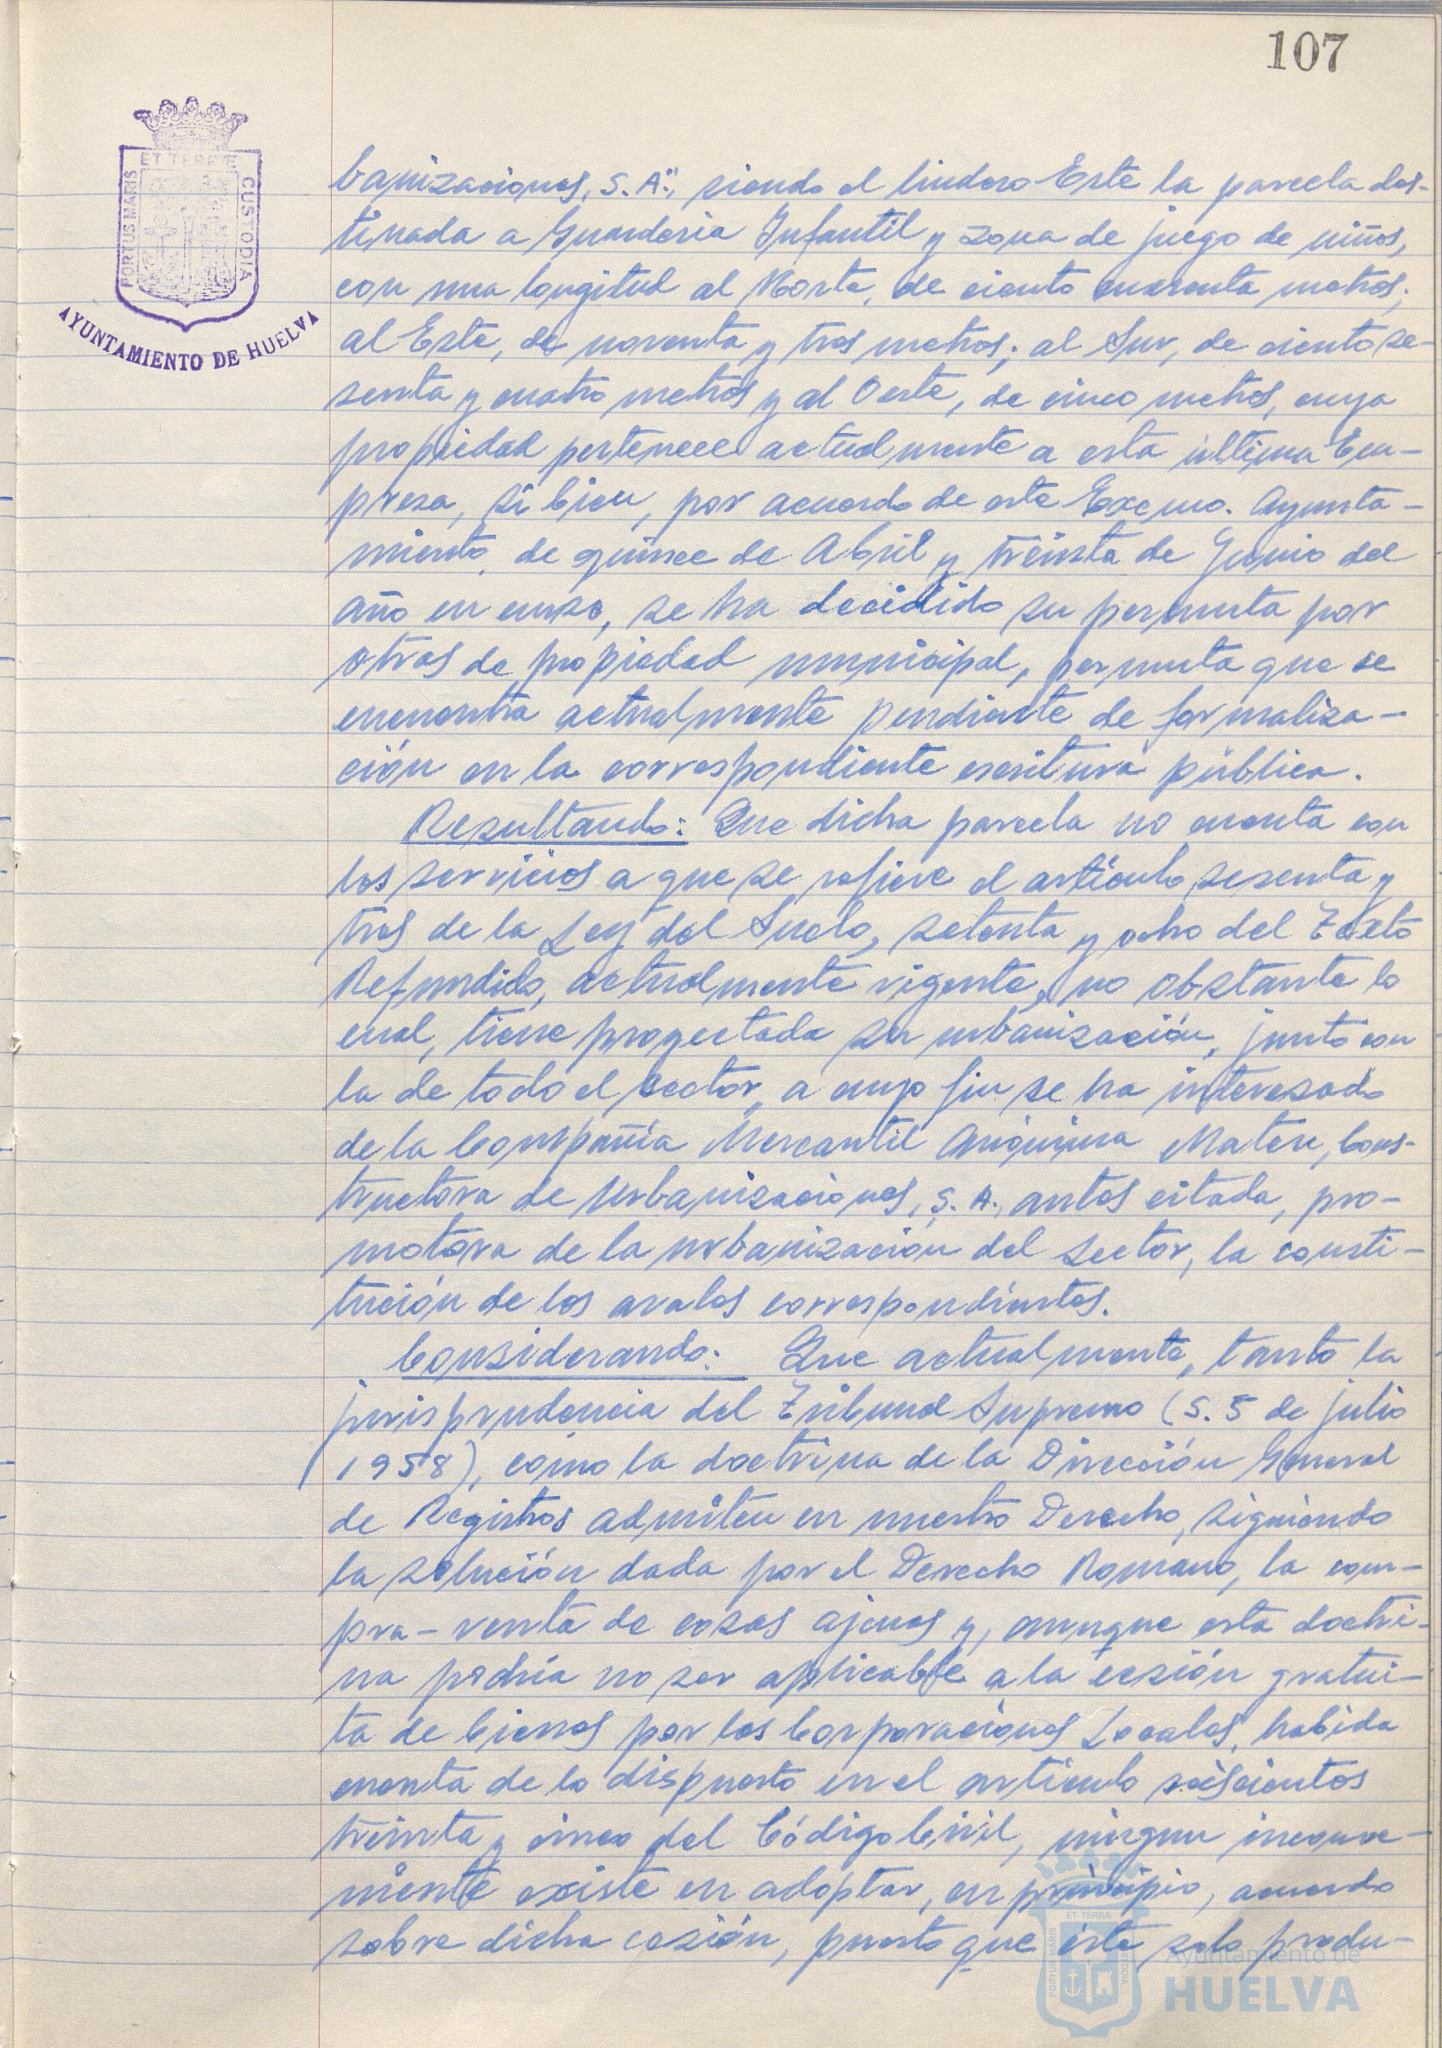 107
ET TERRÆ
PORTUS MARIS
CUSTODIA
AYUNTAMIENTO DE HUELVA
banizaciones, S.A.", siendo el lindero Este la parcela des-
tinada a Guarderia Infantil y zona de juego de niños,
con una longitud al Norte, de ciento cuarenta metros;
al Este, de noventa y tres metros; al Sur, de ciento se-
senta y cuatro metros y al Oeste, de cinco metros, cuya
propiedad pertenece actualmente a esta última Em-
presa, si bien, por acuerdo de este Excmo. Ayunta-
miento, de quince de Abril y treinta de Junio del
año en curso, se ha decidido su permuta por
otras de propiedad municipal, permuta que se
encuentra actualmente pendiente de formaliza-
ción en la correspondiente escritura pública.
Resultando: Que dicha parcela no cuenta con
los servicios a que se refiere el artículo sesenta y
tres de la Ley del Suelo, setenta y ocho del Texto
Refundido, actualmente vigente, no obstante lo
cual, tiene proyectada su urbanización, junto con
la de todo el sector, a cuyo fin se ha interesado
de la Compañía Mercantil Anónima Matere, Cons-
tructora de Urbanizaciones, S.A., antes citada, pro-
motora de la urbanización del sector, la consti-
tución de los avales correspondientes.
Considerando: Que actualmente, tanto la
jurisprudencia del Tribunal Supremo (S. 5 de julio
1958), como la doctrina de la Dirección General
de Registros admiten en nuestro Derecho, siguiendo
la solución dada por el Derecho Romano, la com-
pra-venta de cosas ajenas y, aunque esta doctri-
na podría no ser aplicable a la cesión gratui-
ta de bienes por las Corporaciones Locales, habida
cuenta de lo dispuesto en el artículo seiscientos
treinta y cinco del Código Civil, ningun inconve-
niente existe en adoptar, en principio, acuerdo
sobre dicha cesión, puesto que éste solo produ-
ET TERRA
PORTUS MARIS
CUSTODIA
Ayuntamiento de
HUELVA